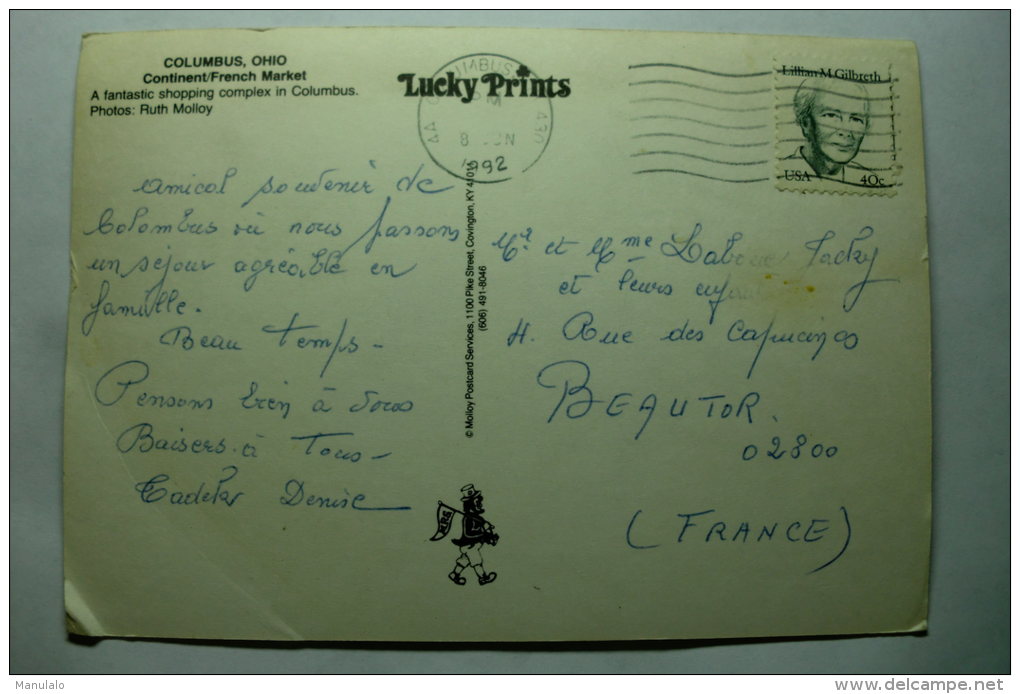 COLUMBUS, OHIO
Continent/French Market
A fantastic shopping complex in Columbus.
Photos: Ruth Molloy
Lucky Prints
8 JUN
1992
Lillian M. Gilbreth
USA 40c
Amical souvenir de
Colombus où nous passons
un séjour agréable en
famille.
Beau temps -
Pensons bien à vous
Baisers à Tous -
Denise
© Molloy Postcard Services, 1100 Pike Street, Covington, KY 41011
(606) 491-8046
Mr et Mme Jacky
et leurs
4. Rue des Capucines
BEAUTOR.
02800
(FRANCE)
Manulalo
www.delcampe.net